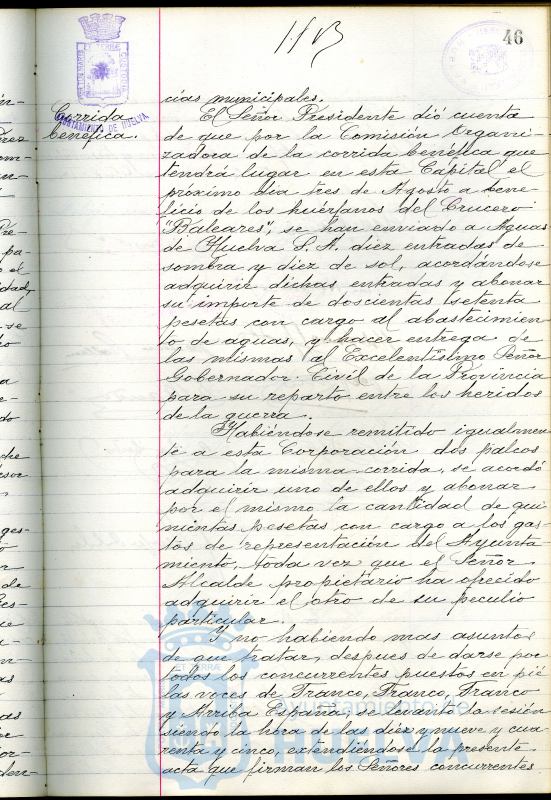 46
Corrida
benéfica.
AYUNTAMIENTO DE HUELVA
cias municipales.
El Señor Presidente dió cuenta
de que por la Comisión Organi-
zadora de la corrida benéfica que
tendrá lugar en esta Capital el
próximo dia tres de Agosto a bene-
ficio de los huérfanos del Crucero
"Baleares", se han enviado a Aguas
de Huelva S. A. diez entradas de
sombra y diez de sol, acordándose
adquirir dichas entradas y abonar
su importe de doscientas setenta
pesetas con cargo al abastecimien
to de aguas, y hacer entrega de
las mismas al Excelentísimo Señor
Gobernador Civil de la Provincia
para su reparto entre los heridos
de la guerra.
Habiéndose remitido igualmen
te a esta Corporación, dos palcos
para la misma corrida, se acordó
adquirir uno de ellos y abonar
por el mismo la cantidad de qui
nientas pesetas con cargo a los gas
tos de representación del Ayunta-
miento, toda vez que el Señor
Alcalde propietario ha ofrecido
adquirir el otro de su peculio
particular.
Y no habiendo mas asuntos
de que tratar, despues de darse por
todos los concurrentes puestos en pié
las voces de Franco, Franco, Franco
y Arriba España, se levantó la sesión
siendo la hora de las diez y nueve y cua
renta y cinco, extendiéndose la presente
acta que firman los Señores concurrentes
Ayuntamiento de